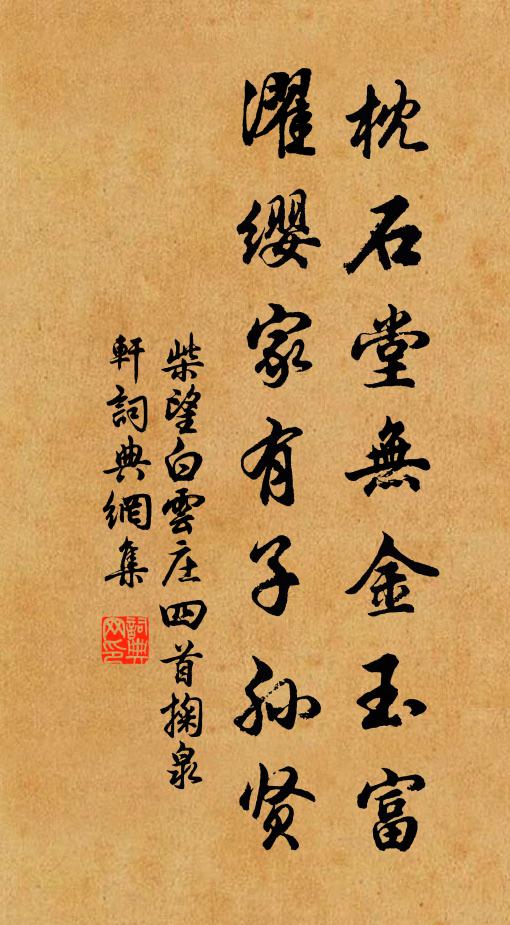 枕石堂無金玉富
濯纓家有子孙贤
柴望白雲庄四首掬泉
軒詞典網集
詞典
网印